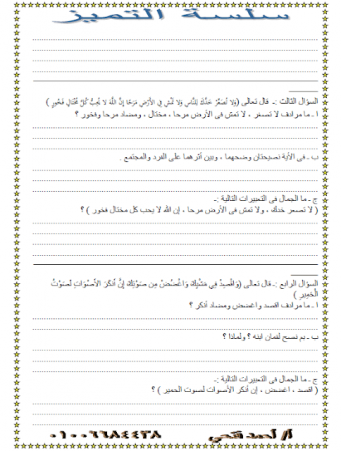 سلسلة التميز
السؤال الثالث :- قال تعالى (وَلَا تُصَعِّرْ خَدَّكَ لِلنَّاسِ وَلَا تَمْشِ فِي الْأَرْضِ مَرَحًا إِنَّ اللَّهَ لَا يُحِبُّ كُلَّ مُخْتَالٍ فَخُورٍ )
ا - ما مرادف لا تصعر ، لا تمش فى الأرض مرحا ، مختال ، ومضاد مرحا وفخور ؟
ب - فى الآية نصيحتان وضحهما ، وبين أثرهما على الفرد والمجتمع .
ج - ما الجمال فى التعبيرات التالية :-
( لا تصعر خدك ، ولا تمش فى الأرض مرحا ، إن الله لا يحب كل مختال فخور ) ؟
السؤال الرابع :- قال تعالى (وَاقْصِدْ فِي مَشْيِكَ وَاغْضُضْ مِن صَوْتِكَ إِنَّ أَنكَرَ الْأَصْوَاتِ لَصَوْتُ
الْحَمِيرِ )
ا - ما مرادف اقصد واغضض ومضاد أنكر ؟
ب - بم نصح لقمان ابنه ؟ ولماذا ؟
ج - ما الجمال فى التعبيرات التالية :-
( اقصد ، اغضض ، إن أنكر الأصوات لصوت الحمير ) ؟
أ/ أحمد فتحي ٠١٠٠٦٦٨٤٤٣٨